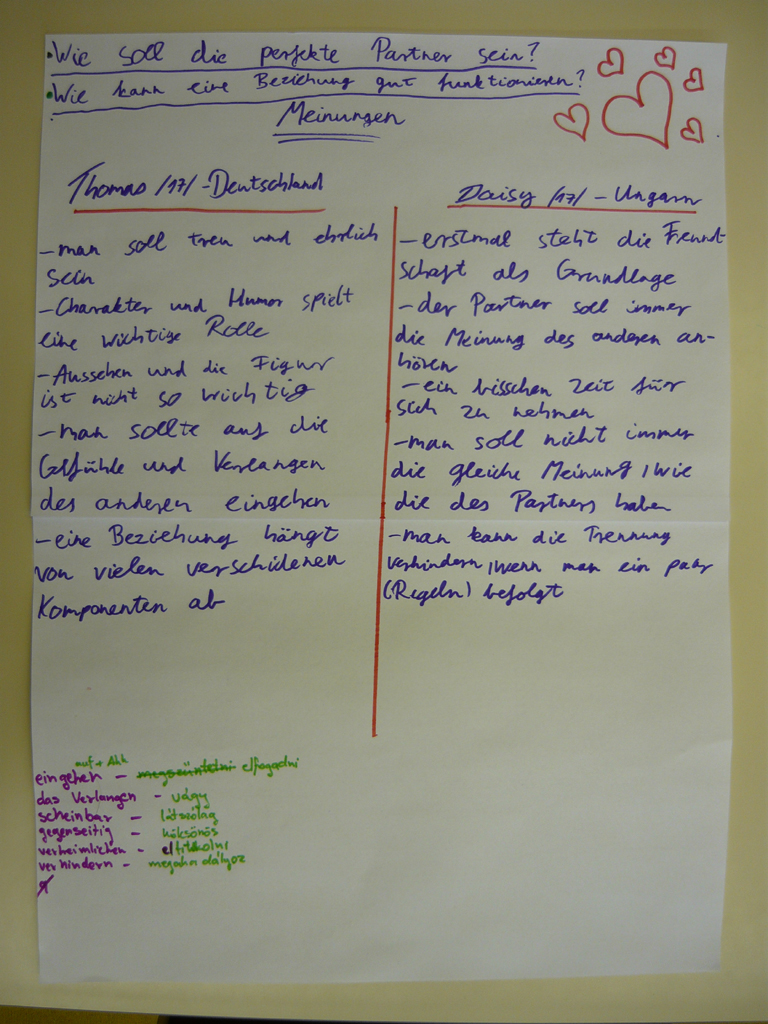 • Wie soll die perfekte Partner sein?
• Wie kann eine Beziehung gut funktionieren?
Meinungen
Thomas /17/ - Deutschland
- man soll treu und ehrlich
sein
- Charakter und Humor spielt
eine wichtige Rolle
- Aussehen und die Figur
ist nicht so wichtig
- man sollte auf die
Gefühle und Verlangen
des anderen eingehen
- eine Beziehung hängt
von vielen verschidenen
Komponenten ab
Daisy /17/ - Ungarn
- erstmal steht die Freund-
schaft als Grundlage
- der Partner soll immer
die Meinung des anderen an-
hören
- ein bisschen Zeit für
sich zu nehmen
- man soll nicht immer
die gleiche Meinung, wie
die des Partners haben
- man kann die Trennung
verhindern, wenn man ein paar
(Regeln) befolgt
auf + Akk
eingehen - megszüntetni elfogadni
das Verlangen - vágy
scheinbar - látszólag
gegenseitig - kölcsönös
verheimlichen - eltitkolni
verhindern - megakadályoz